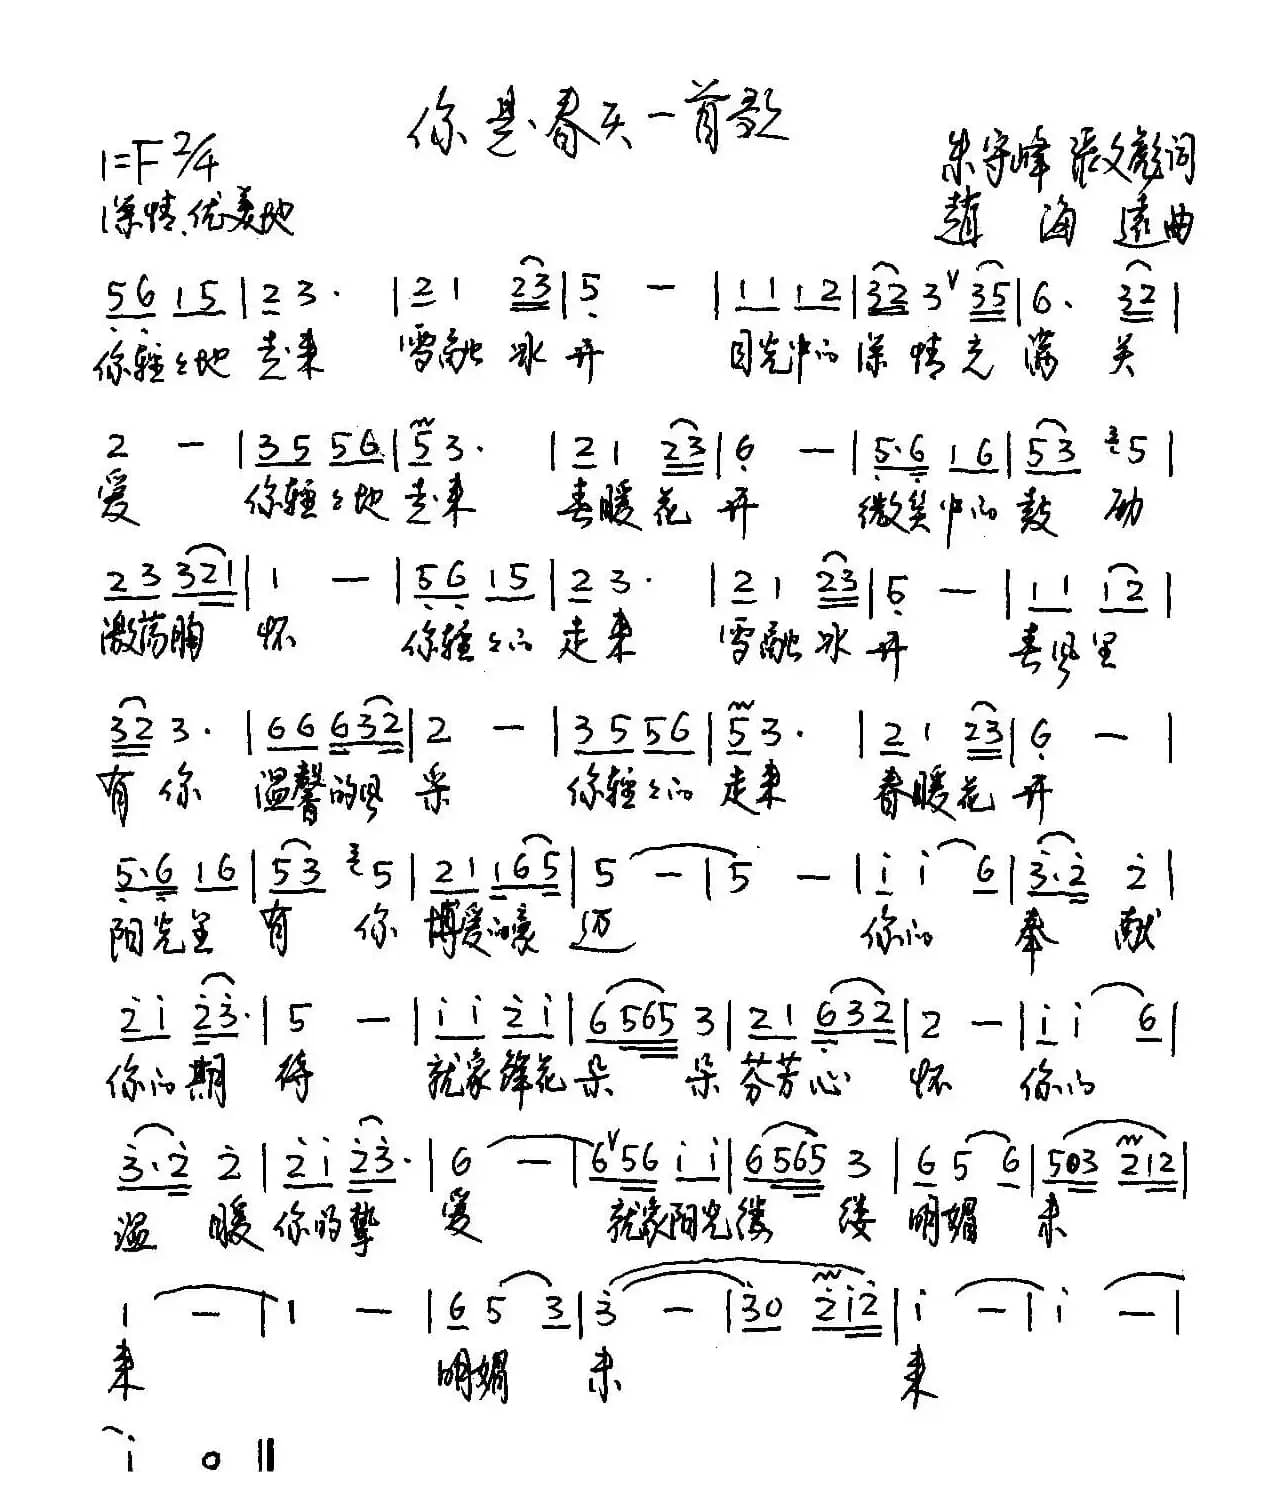 你是春天一首歌
1=F 2/4
朱守峰 张文彪词
深情、优美地
趙海远曲
5 6 1 5 | 2 3 · | 2 1 2 3 | 5 — | 1 1 1 2 | 3 2 3 V 3 5 | 6 · 3 2 |
你轻々地 走来 雪融冰开 目光中的深情充满关
2 — | 3 5 5 6 | 5 3 · | 2 1 2 3 | 6 — | 5 · 6 1 6 | 5 3 3 5 |
爱 你轻々地 走来 春暖花开 微笑中的鼓励
2 3 3 2 1 | 1 — | 5 6 1 5 | 2 3 · | 2 1 2 3 | 5 — | 1 1 1 2 |
激荡胸怀 你轻々的 走来 雪融冰开 春风里
3 2 3 · | 6 6 6 3 2 | 2 — | 3 5 5 6 | 5 3 · | 2 1 2 3 | 6 — |
有你 温馨的风采 你轻々的 走来 春暖花开
5 · 6 1 6 | 5 3 3 5 | 2 1 1 6 5 | 5 — | 5 — | i i 6 | 3 · 2 2 |
阳光里 有你 博爱的豪迈 你的奉献
2 i 2 3 · | 5 — | i i 2 i | 6 5 6 5 3 | 2 1 6 3 2 | 2 — | i i 6 |
你的期待 就象锋花朵朵芬芳心怀 你的
3 · 2 2 | 2 i 2 3 · | 6 — | 6 V 5 6 i i | 6 5 6 5 3 | 6 5 6 | 5 0 3 2 1 2 |
温暖 你的挚爱 就象阳光缕缕 明媚未
1 — | 1 — | 6 5 3 | 3 — | 3 0 2 i 2 | i — | i — |
来 明媚未来
i 0 ‖